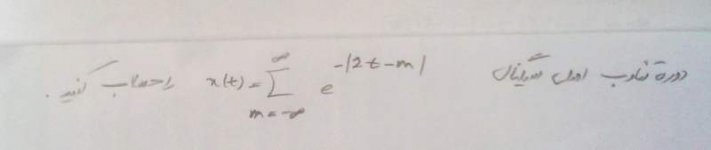 دورة تناوب اصلی سیگنال x(t) = \sum_{m=-\infty}^{\infty} e^{-|2t-m|} را حساب کنید.